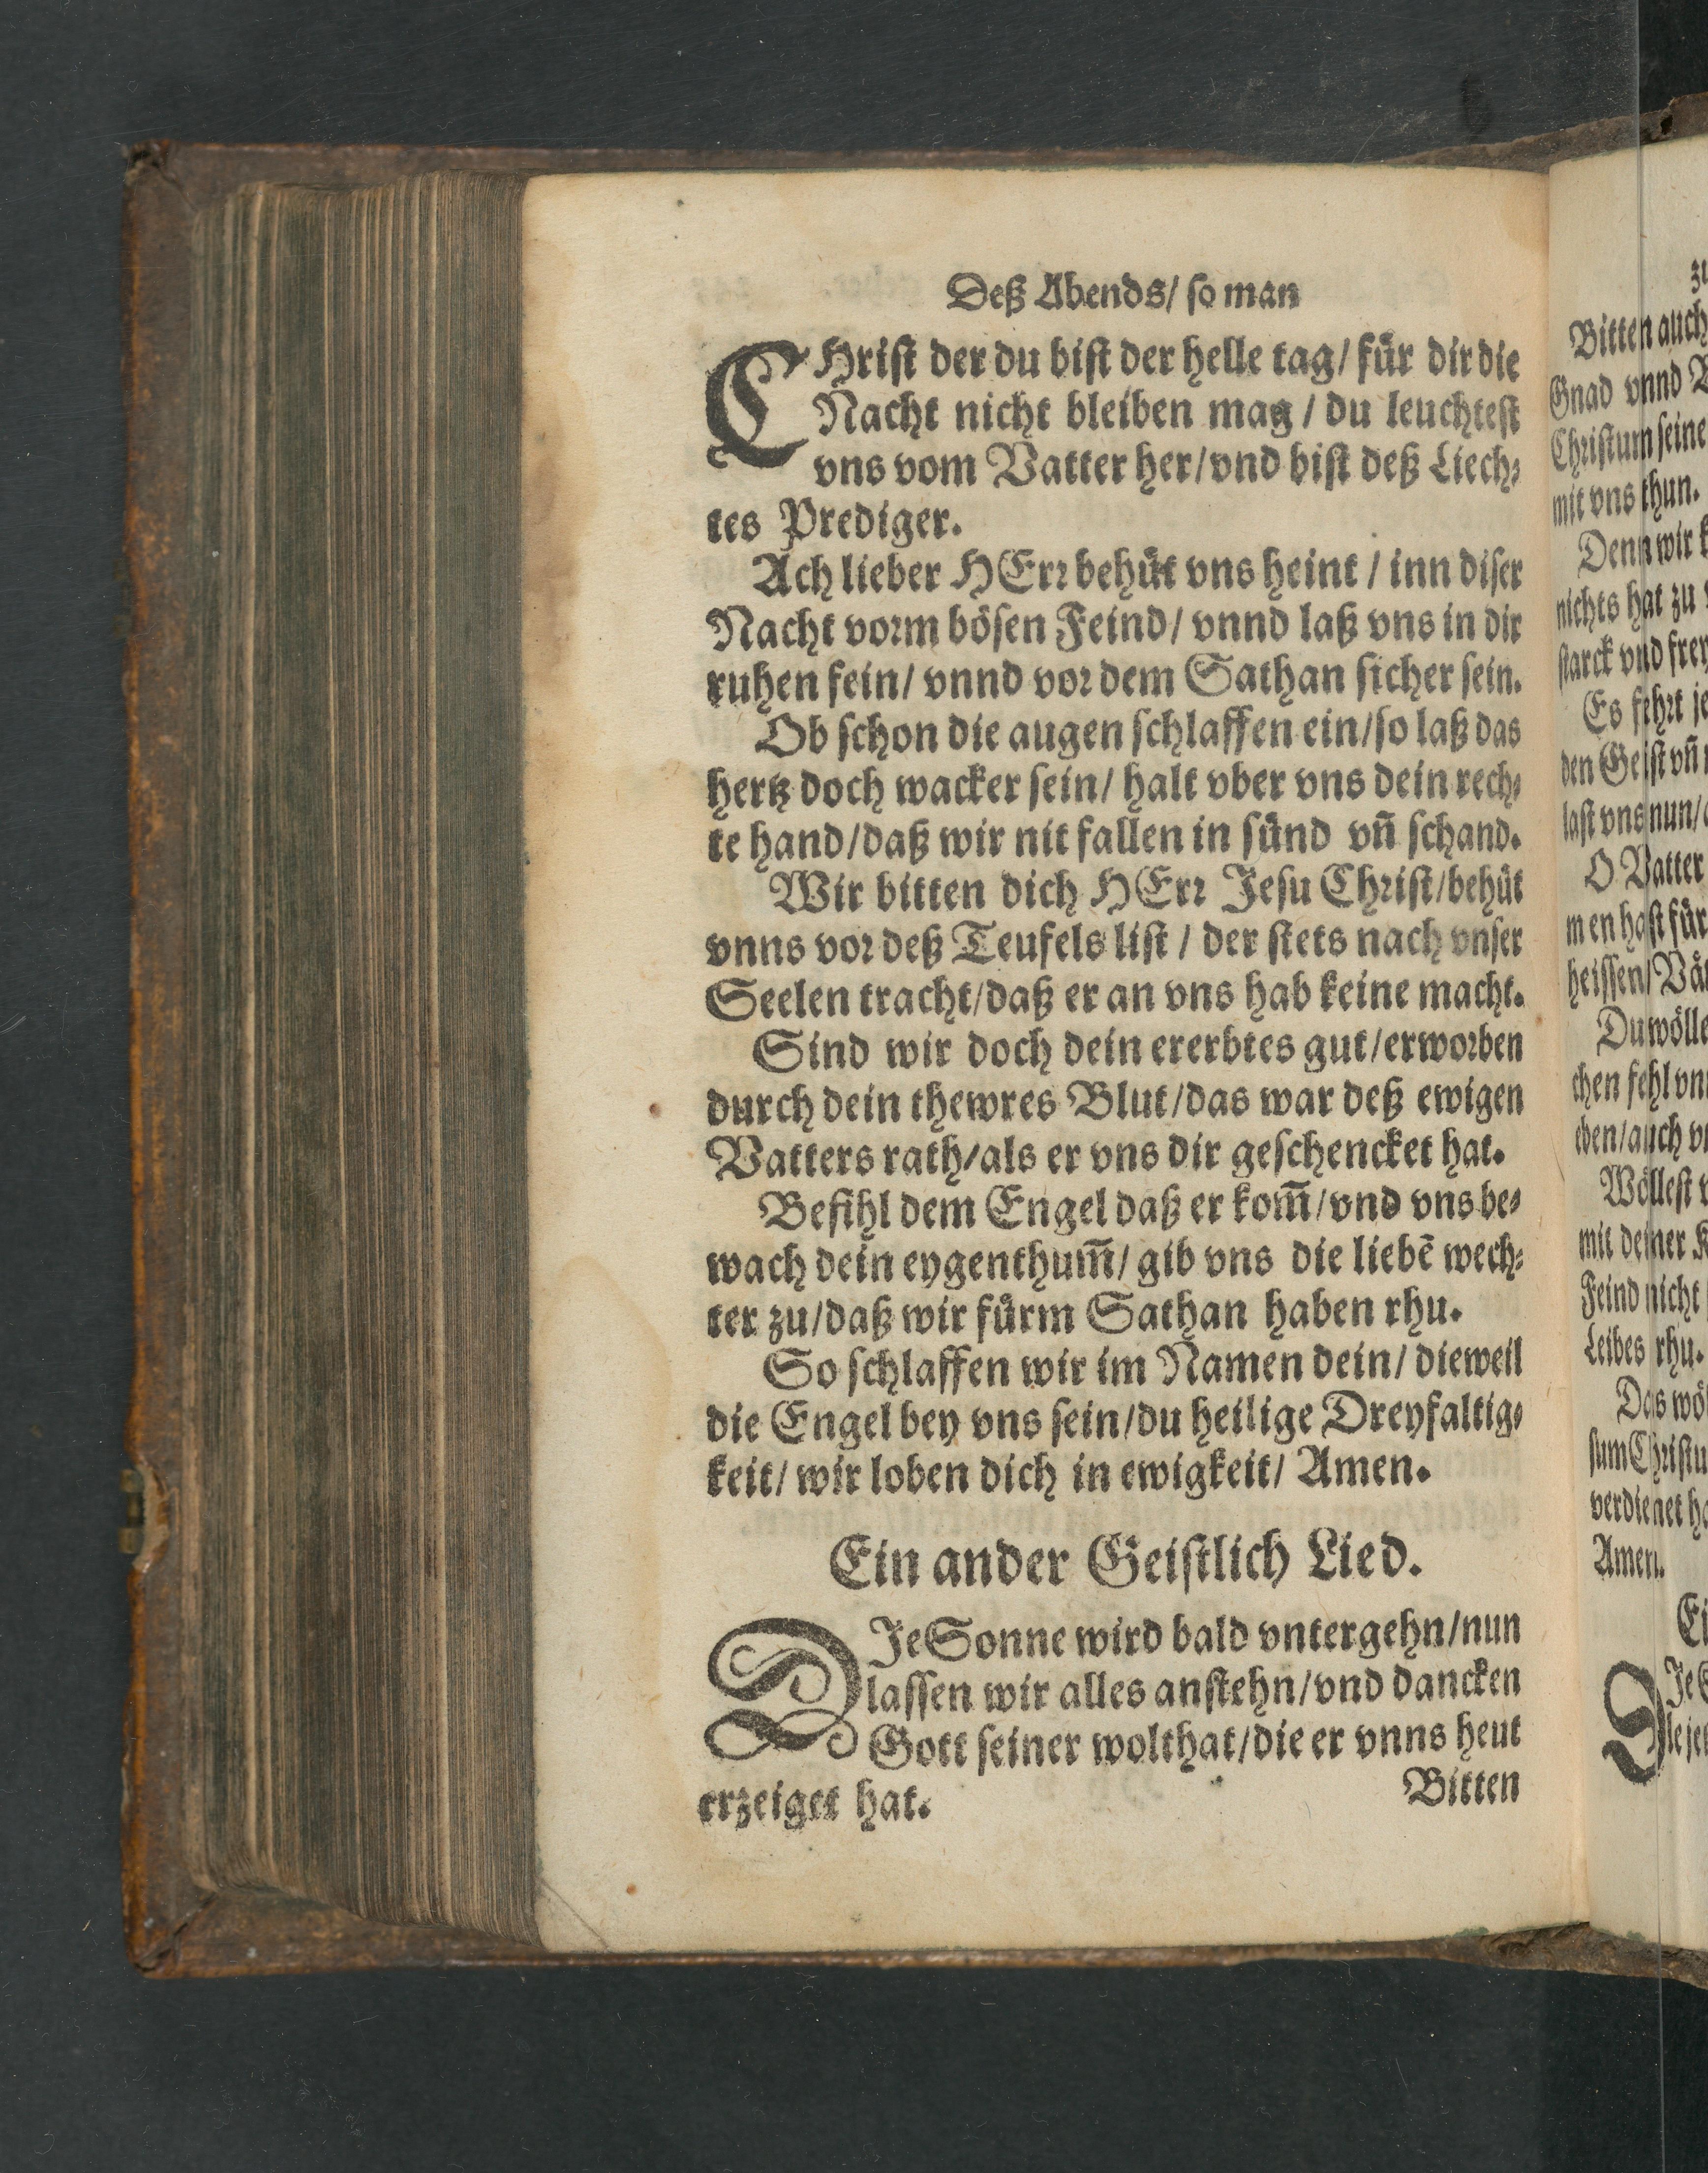 Deß Abends/ so man
CHrist der du bist der helle tag/ für dir die
Nacht nicht bleiben mag / du leuchtest
vns vom Vatter her/vnd bist deß Liech⸗
tes Prediger.
Ach lieber HErr behüt vns heint / inn diser
Nacht vorm bösen Feind/ vnnd laß vns in dir
ruhen fein/ vnnd vor dem Sathan sicher sein.
Ob schon die augen schlaffen ein/so laß das
hertz doch wacker sein/ halt vber vns dein rech⸗
te hand/daß wir nit fallen in sünd vn̄ schand.
Wir bitten dich HErr Jesu Christ/behüt
vnns vor deß Teufels list / der stets nach vnser
Seelen tracht/daß er an vns hab keine macht.
Sind wir doch dein ererbtes gut/erworben
durch dein thewres Blut/das war deß ewigen
Vatters rath/als er vns dir geschencket hat.
Befihl dem Engel daß er kom̄/vnd vns be⸗
wach dein eygenthum̄/ gib vns die liebē wech⸗
ter zu/daß wir fürm Sathan haben rhu.
So schlaffen wir im Namen dein/ dieweil
die Engel bey vns sein/du heilige Dreyfaltig⸗
keit/ wir loben dich in ewigkeit/ Amen.
Ein ander Geistlich Lied.
DJe Sonne wird bald vntergehn/nun
lassen wir alles anstehn/vnd dancken
Gott seiner wolthat/die er vnns heut
erzeiget hat.
Bitten
Bitten auch
Gnad vnnd
Christum seine
mit vns thun.
Denn wir
nichts hat zu
starck vnd frey
Es fehrt je
den Geist vn̄
last vns nun/
O Vatter
men hast für
heissen/ Vät
Du wölle
chen fehl vn
eben/auch
Wöllest
mit deiner
Feind nicht
Leibes rhu.
Das wö
sum Christu
verdienet ha
Amen.